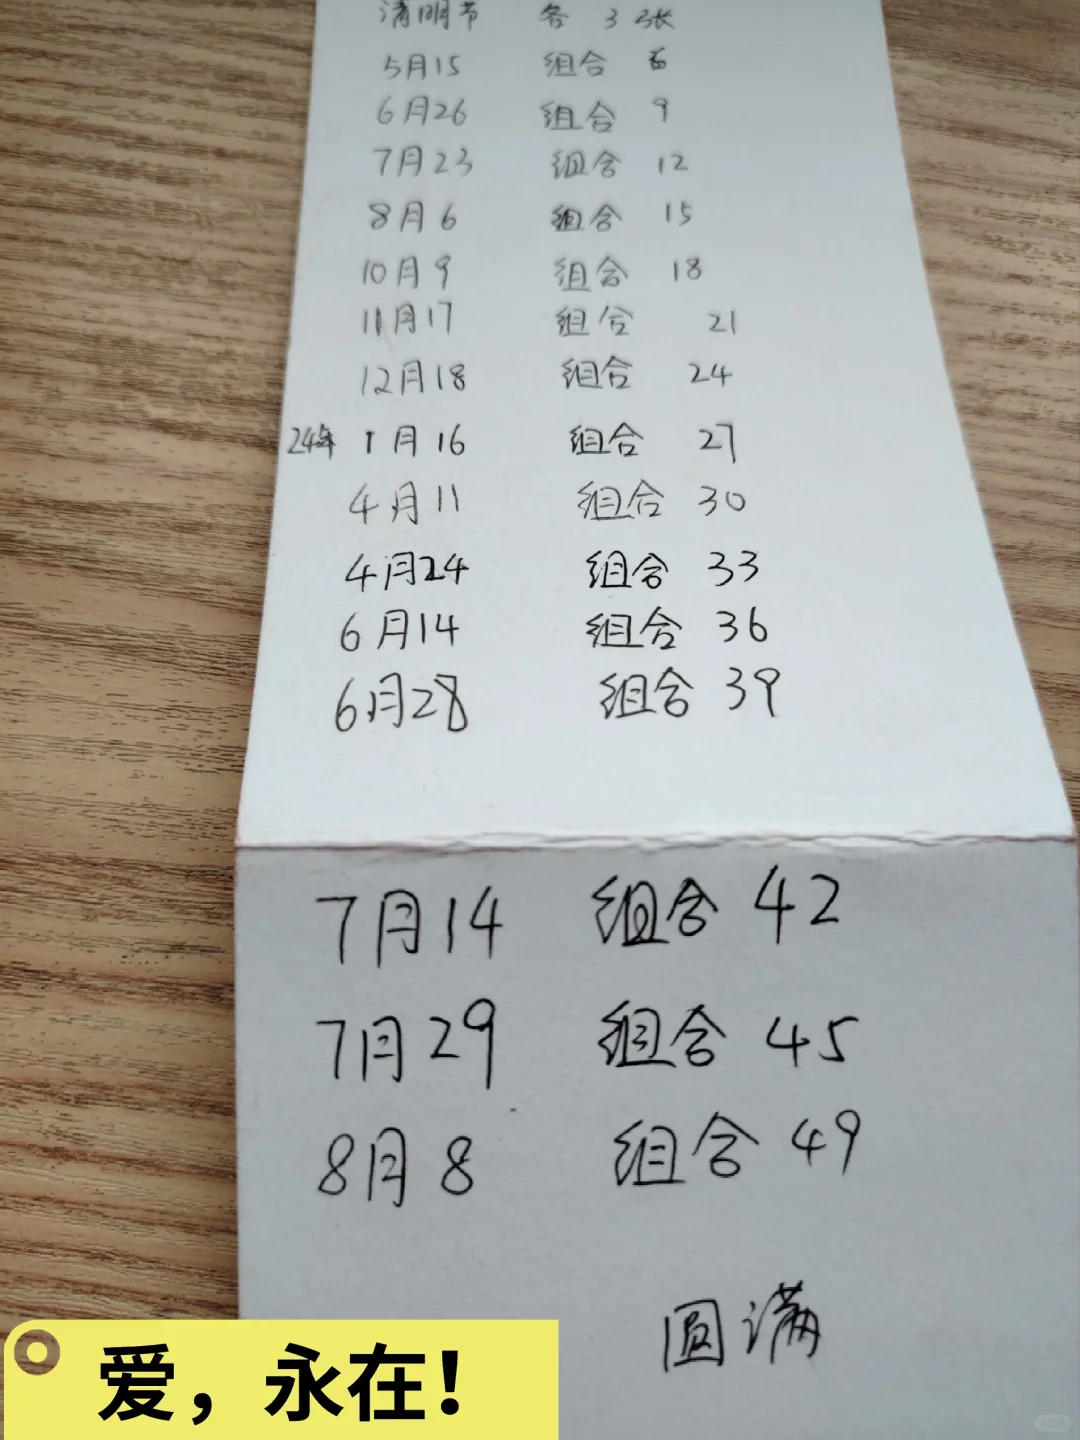 清明节 各 3 张
5月15 组合 6
6月26 组合 9
7月23 组合 12
8月6 组合 15
10月9 组合 18
11月17 组合 21
12月18 组合 24
24年 1月16 组合 27
4月11 组合 30
4月24 组合 33
6月14 组合 36
6月28 组合 39
7月14 组合 42
7月29 组合 45
8月8 组合 49
圆满
爱，永在！